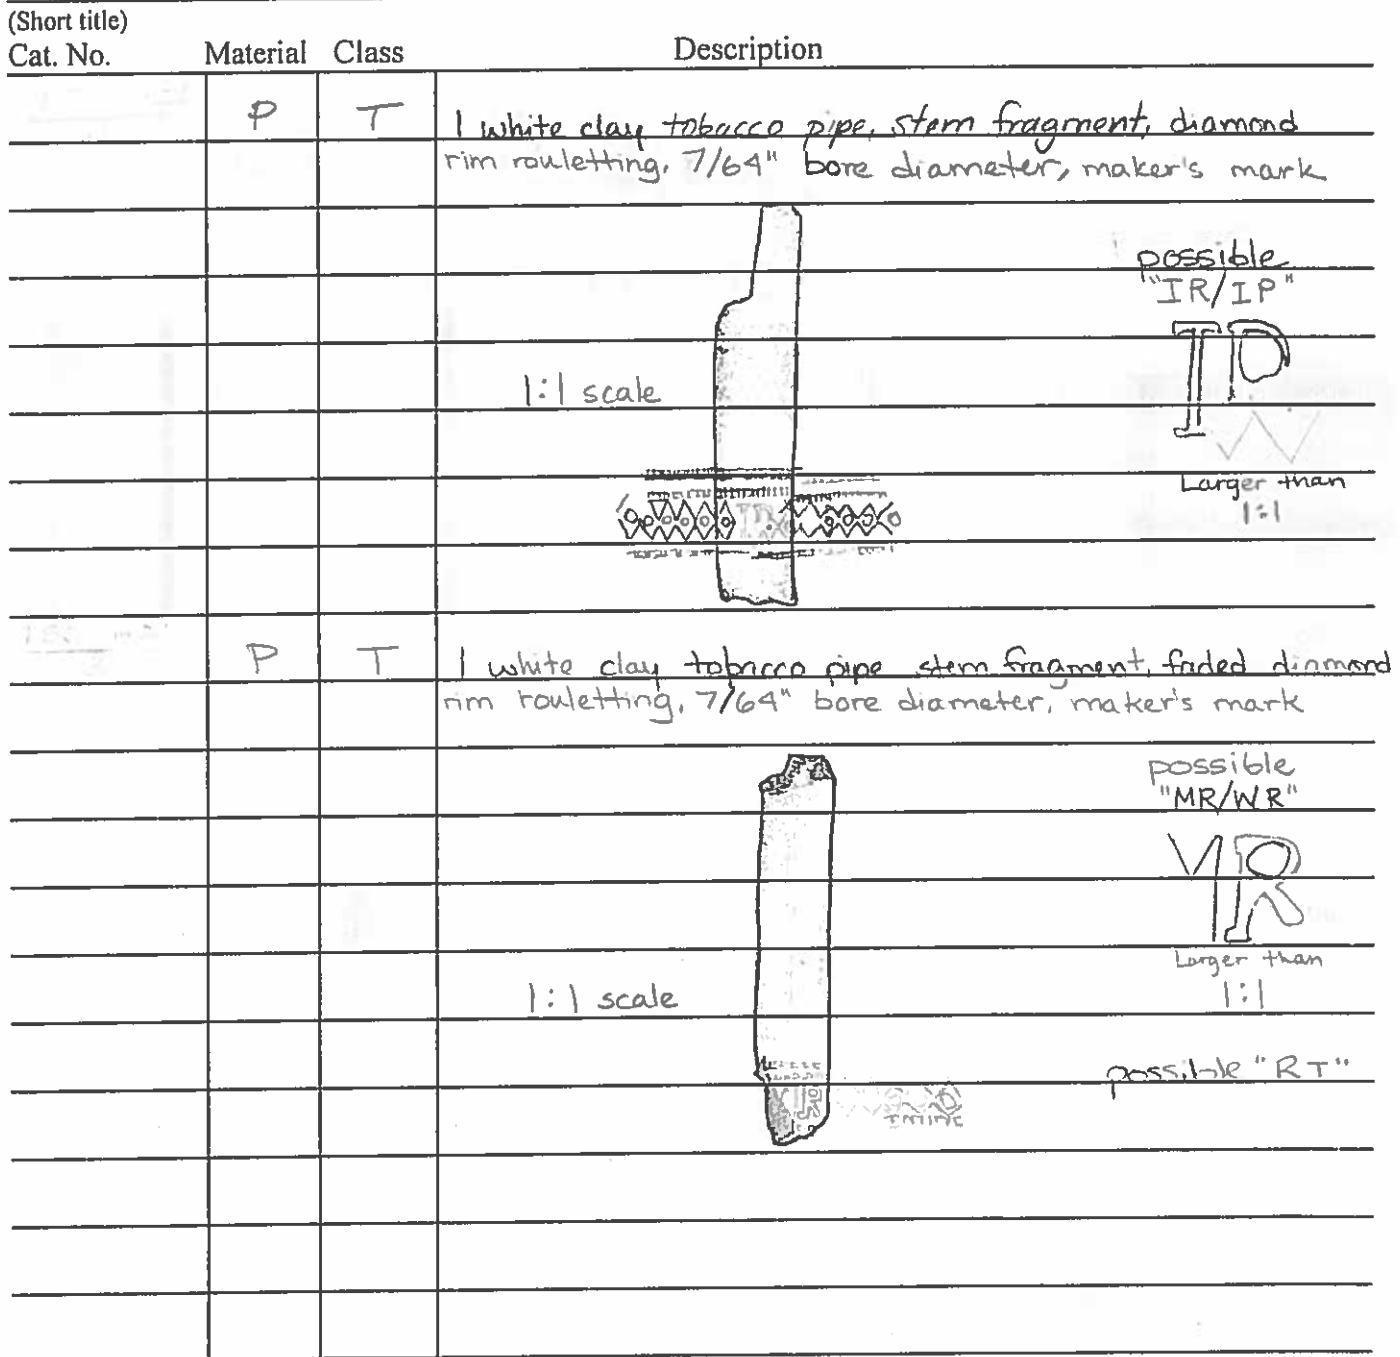 (Short title)
Cat. No. Material Class Description
P T 1 white clay tobacco pipe, stem fragment, diamond
rim rouletting, 7/64" bore diameter, maker's mark
possible
"IR/IP"
IP
1:1 scale
Larger than
1:1
P T 1 white clay tobacco pipe stem fragment, faded diamond
rim rouletting, 7/64" bore diameter, maker's mark
possible
"MR/WR"
R
Larger than
1:1
1:1 scale
possible "RT"